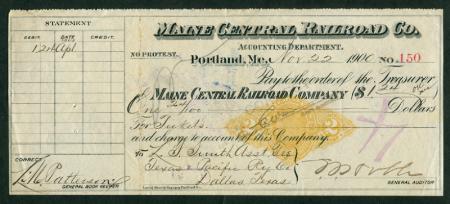 STATEMENT
DEBIT. DATE CREDIT.
CORRECT
GENERAL BOOK KEEPER
MAINE CENTRAL RAILROAD CO.
ACCOUNTING DEPARTMENT.
NO PROTEST.
Portland, Me., Nov. 22 1900 NO. 150
Pay to the order of the Treasurer
of MAINE CENTRAL RAILROAD COMPANY ($ 1 24
One 24/100 Dollars
For Tickets.
and charge to account of this Company.
To L. S. Smith Asst. Treas
Texas & Pacific Ry Co
Dallas Texas
GENERAL AUDITOR